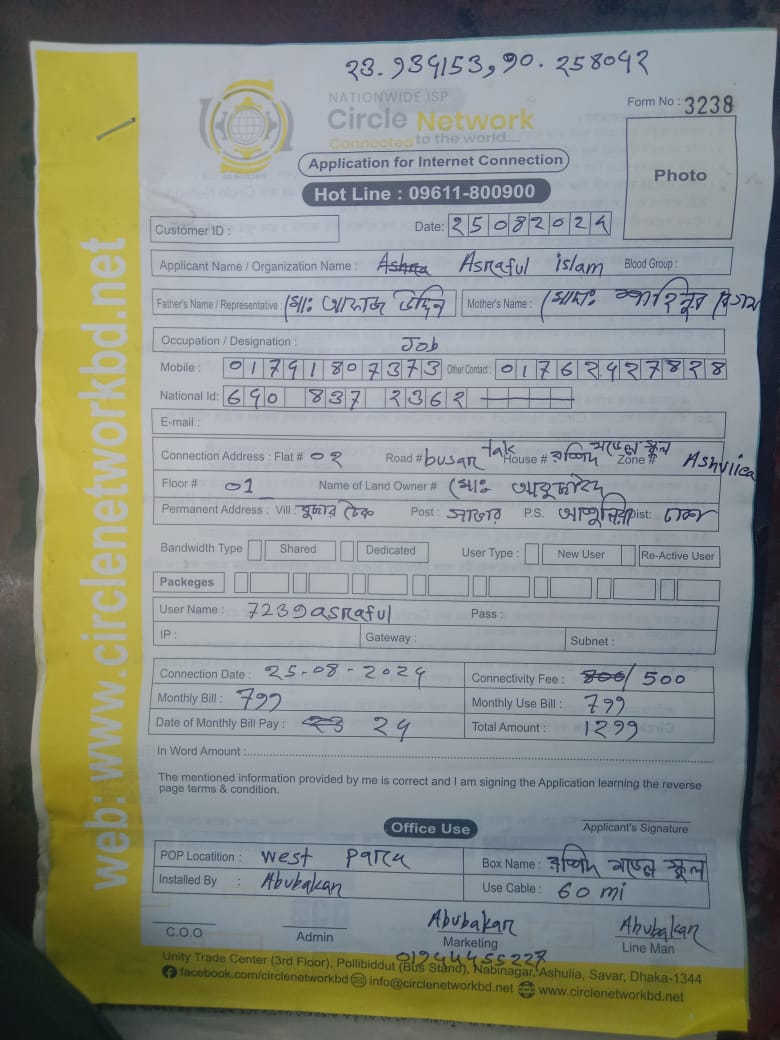 23.934153,90.258042
NATIONWIDE ISP
Circle Network
Connected to the world....
Form No : 3238
Photo
Application for Internet Connection
Hot Line : 09611-800900
Customer ID :
Date: 25082024
Applicant Name / Organization Name : Asraful islam Blood Group :
Father's Name / Representative মোঃ আফাজ উদ্দিন Mother's Name : মোসাঃ শাহিনুর বেগম
Occupation / Designation : Job
Mobile : 01791807373 Other Contact : 01762427828
National Id: 690 837 2362
E-mail :
Connection Address : Flat # 02 Road # busar tak House # রশিদ মডেল স্কুল Zone # Ashulica
Floor # 01 Name of Land Owner # মোঃ
Permanent Address : Vill : বুড়ার টেক Post : সাভার P.S. আশুলিয়া Dist: ঢাকা
Bandwidth Type Shared Dedicated User Type : New User Re-Active User
Packeges
User Name : 7239asraful Pass :
IP : Gateway : Subnet :
Connection Date : 25-08-2024 Connectivity Fee : 800/ 500
Monthly Bill : 799 Monthly Use Bill : 799
Date of Monthly Bill Pay : 23 24 Total Amount : 1299
In Word Amount :
The mentioned information provided by me is correct and I am signing the Application learning the reverse
page terms & condition.
Applicant's Signature
Office Use
POP Locatition : West Para Box Name : রশিদ মডেল স্কুল
Installed By : Abubakar Use Cable : 60 mi
Abubakar Abubakar
C.O.O Admin Marketing Line Man
01944455227
Unity Trade Center (3rd Floor), Pollibiddut (Bus Stand), Nabinagar, Ashulia, Savar, Dhaka-1344
facebook.com/circlenetworkbd info@circlenetworkbd.net www.circlenetworkbd.net
web: www.circlenetworkbd.net